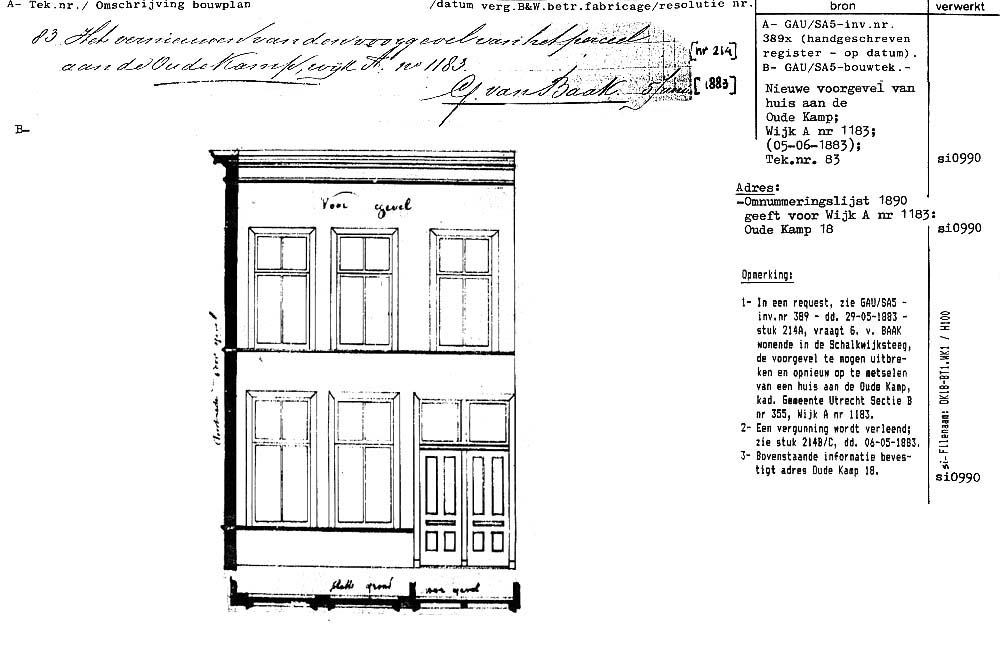 A- Tek.nr./ Omschrijving bouwplan
/datum verg.B&W.betr.fabricage/resolutie nr.
bron
verwerkt
83 Het vernieuwen van den voorgevel van het perceel
aan de Oude Kamp, wijk A. nº 1183.
G. van Baak. 5 Juni
[nr 214]
[1883]
B-
Voor gevel
voor gevel
A- GAU/SA5-inv.nr.
389x (handgeschreven
register - op datum).
B- GAU/SA5-bouwtek.-
Nieuwe voorgevel van
huis aan de
Oude Kamp;
Wijk A nr 1183;
(05-06-1883);
Tek.nr. 83
si0990
Adres:
-Omnummeringslijst 1890
geeft voor Wijk A nr 1183:
Oude Kamp 18
si0990
Opmerking:
1- In een request, zie GAU/SA5 -
inv.nr 389 - dd. 29-05-1883 -
stuk 214A, vraagt G. v. BAAK
wonende in de Schalkwijksteeg,
de voorgevel te mogen uitbre-
ken en opnieuw op te metselen
van een huis aan de Oude Kamp,
kad. Gemeente Utrecht Sectie B
nr 355, Wijk A nr 1183.
2- Een vergunning wordt verleend;
zie stuk 214B/C, dd. 06-05-1883.
3- Bovenstaande informatie beves-
tigt adres Oude Kamp 18.
si0990
si-Filenaam: OKLB-BT1.WK1 / H100